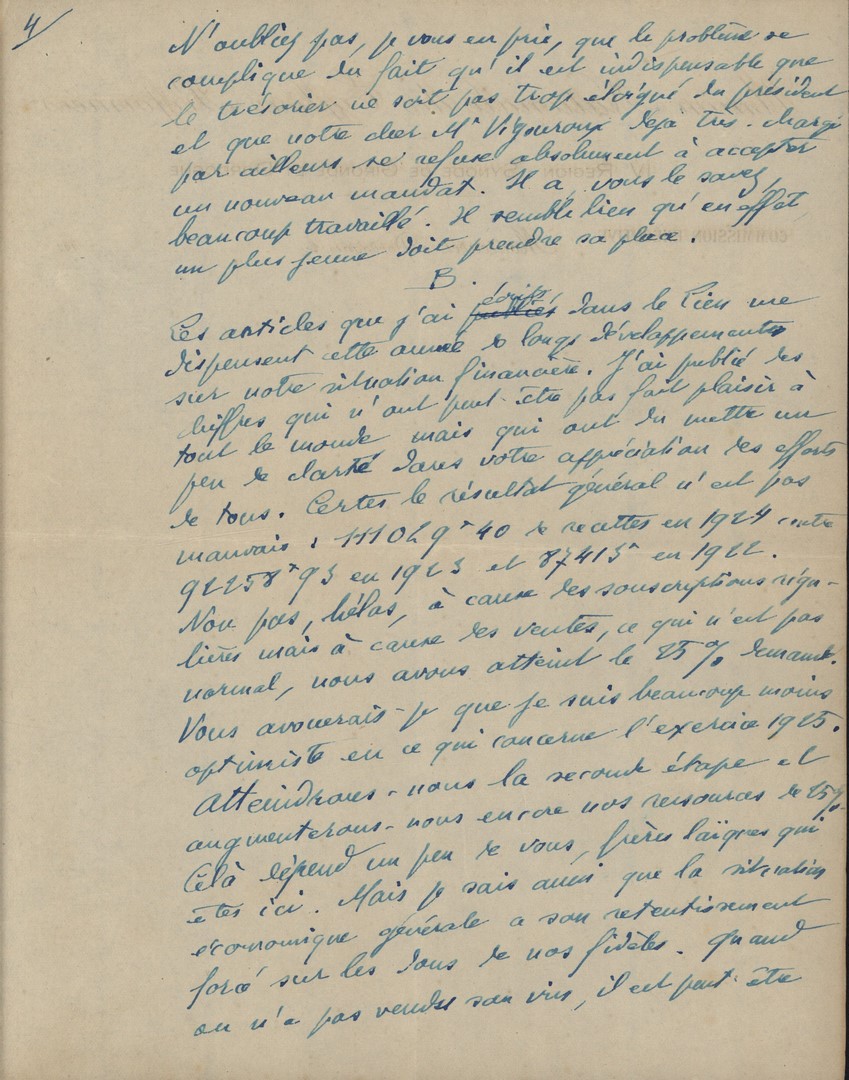 4/
N'oubliez pas, je vous en prie, que le problème se
complique du fait qu'il est indispensable que
le trésorier ne soit pas trop éloigné du président
et que notre cher Mr Vigouroux déjà très-chargé
par ailleurs se refuse absolument à accepter
un nouveau mandat. Il a, vous le savez,
beaucoup travaillé. Il semble bien qu'en effet
un plus jeune doit prendre sa place.
B.
écrits
Les articles que j'ai publiés dans le Lien me
dispensent cette année de longs développements
sur notre situation financière. J'ai publié des
chiffres qui n'ont peut-être pas fait plaisir à
tout le monde mais qui ont du mettre un
peu de clarté dans votre appréciation des efforts
de tous. Certes le résultat général n'est pas
mauvais : 111029 40 de recettes en 1924 contre
92258 93 en 1923 et 87415 en 1922.
Non pas, hélas, à cause des souscriptions régu-
lières mais à cause des ventes, ce qui n'est pas
normal, nous avons atteint le 25% demandé.
Vous avouerais-je que je suis beaucoup moins
optimiste en ce qui concerne l'exercice 1925.
Atteindrons-nous la seconde étape et
augmenterons-nous encore nos ressources de 25%.
Celà dépend un peu de vous, frères laïques qui
êtes ici. Mais je sais aussi que la situation
économique générale a son retentissement
forcé sur les dons de nos fidèles. Quand
on n'a pas vendu son vin, il est peut-être